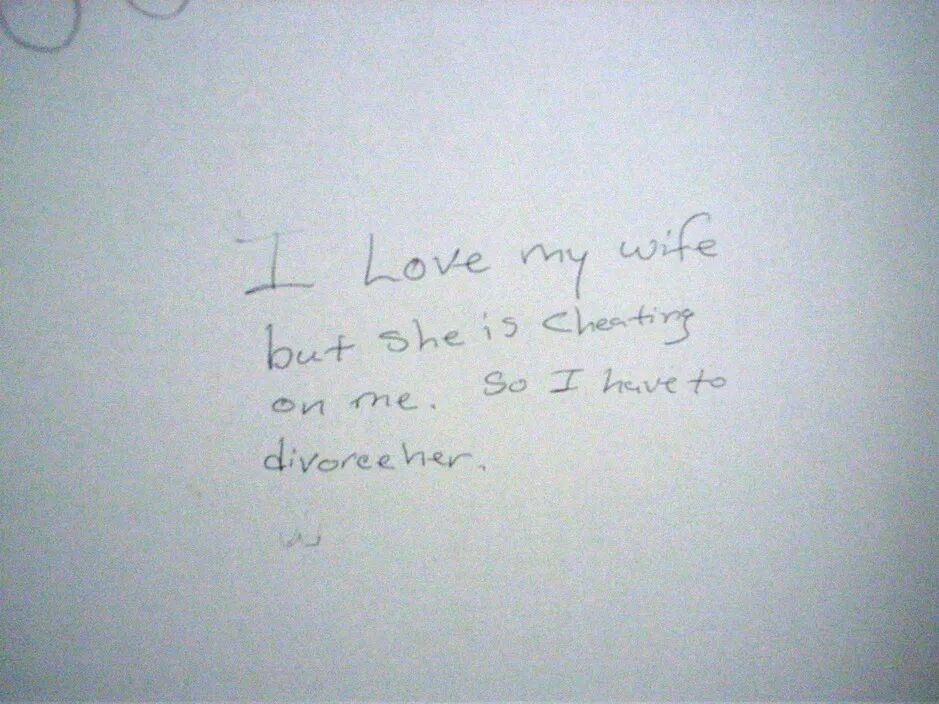 I Love my wife
but she is cheating
on me. So I have to
divorce her.